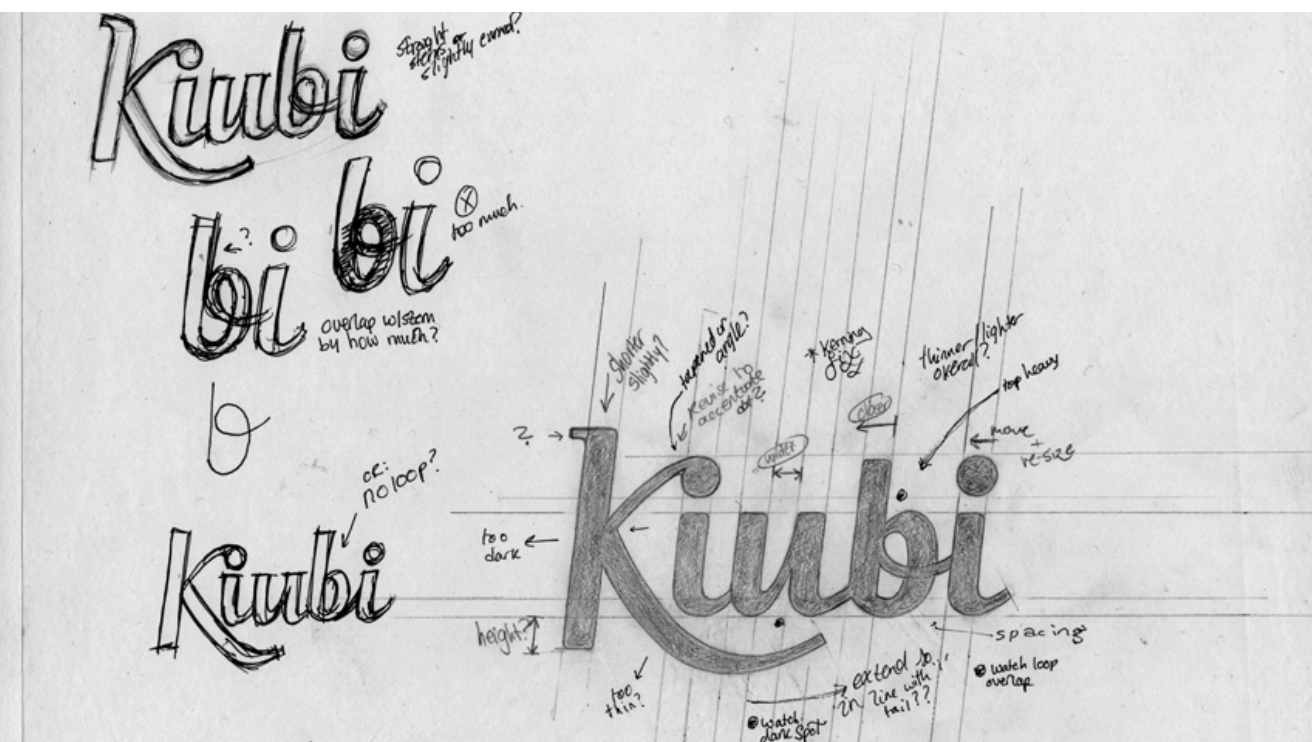 Kiubi
straight
stems or
slightly curved?
bi
X
too much.
bi
?
overlap w/stem
by how much?
b
or:
no loop?
Kiubi
shorter
slightly?
tapered or
angle?
Revise to
accentuate
dot?
* Kerning
fix
thinner/lighter
overall?
top heavy
closer
move
+
re-size
wider
?
Kiubi
too
dark
height?
too
thin?
spacing
watch loop
overlap
extend so
in line with
tail??
watch
dark spot